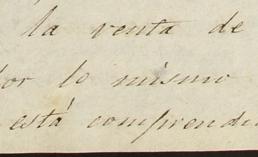 la venta de
por lo mismo
está comprendi